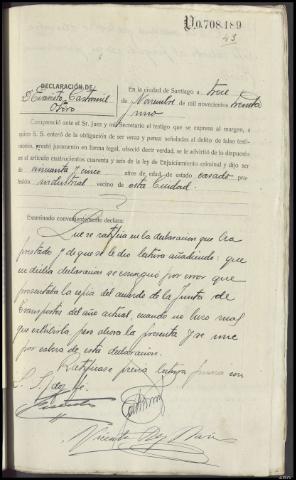 P.0.708.189
43
DECLARACIÓN DE
D. Evaristo Castromil
Otero
En la ciudad de Santiago a trece
de Noviembre de mil novecientos treinta
y uno
Compareció ante el Sr. Juez y mi Secretario el testigo que se expresa al margen, a
quien S. S. enteró de la obligación de ser veraz y penas señaladas al delito de falso testi-
monio, prestó juramento en forma legal, ofreció decir verdad, se le advirtió de lo dispuesto
en el artículo cuatrocientos cuarenta y seis de la ley de Enjuiciamiento criminal y dijo ser
de cincuenta y cinco años de edad, de estado casado pro-
fesión industrial vecino de esta Ciudad.
Examinado convenientemente declara:
Que se ratifica en la declaracion que ha
prestado y de que se le dio lectura añadiendo: que
en dicha declaracion se consignó por error que
presentaba la copia del acuerdo de la Junta de
transportes del año actual, cuando no hizo mas
que exhibirla pero ahora la presenta y se une
por cabeza de esta declaracion.
Ratificase previa lectura firma con
S. S. doy fe.
Vicente Rey